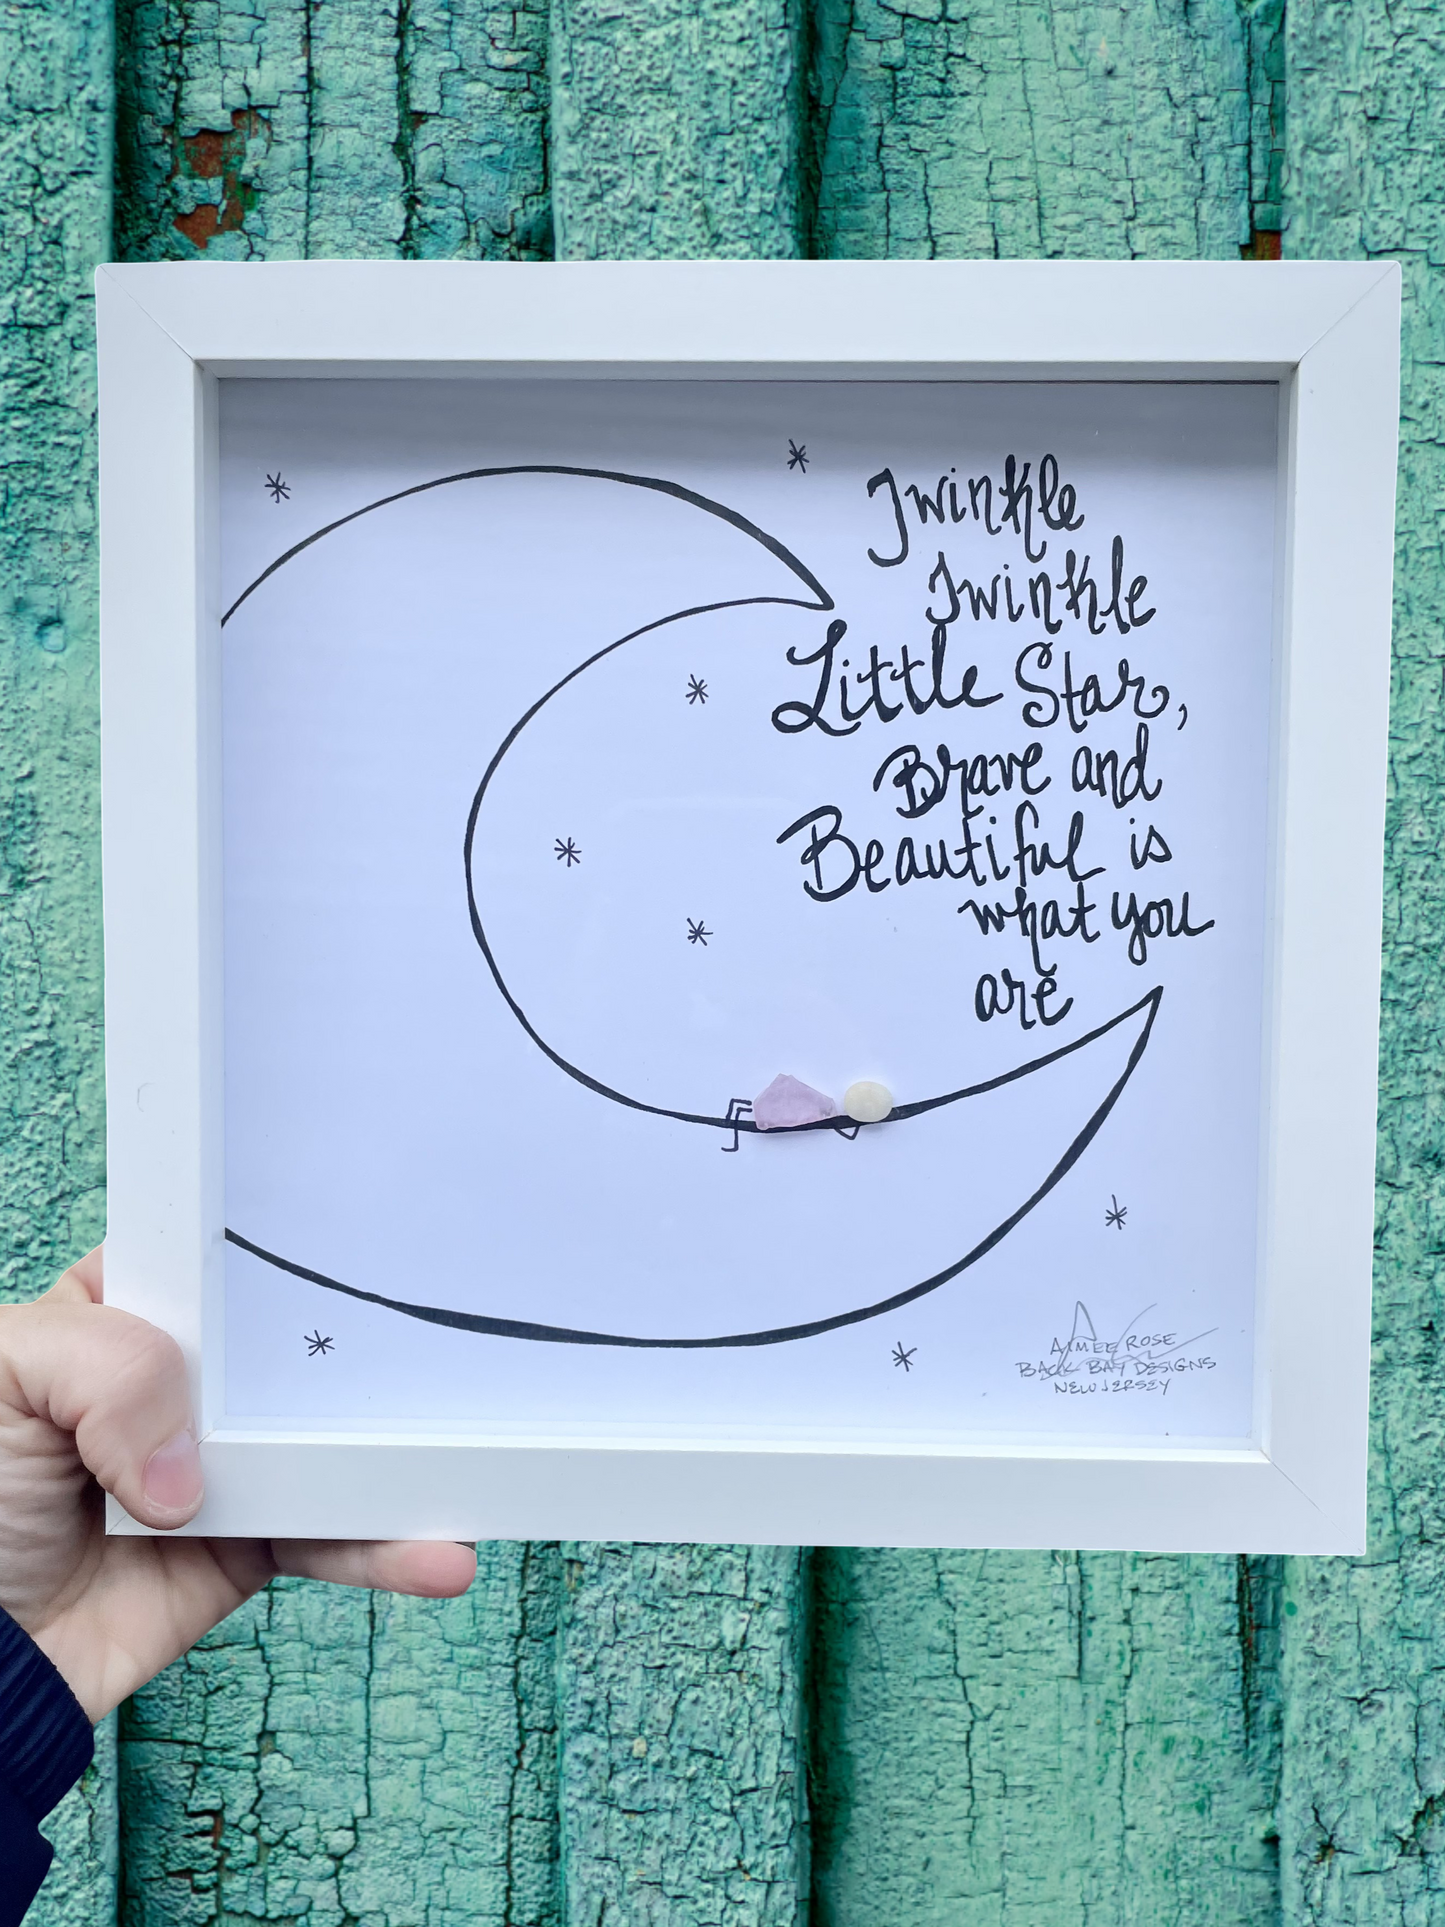 Twinkle
Twinkle
Little Star,
Brave and
Beautiful is
what you
are
AIMEE ROSE
BACK BAY DESIGNS
NEW JERSEY